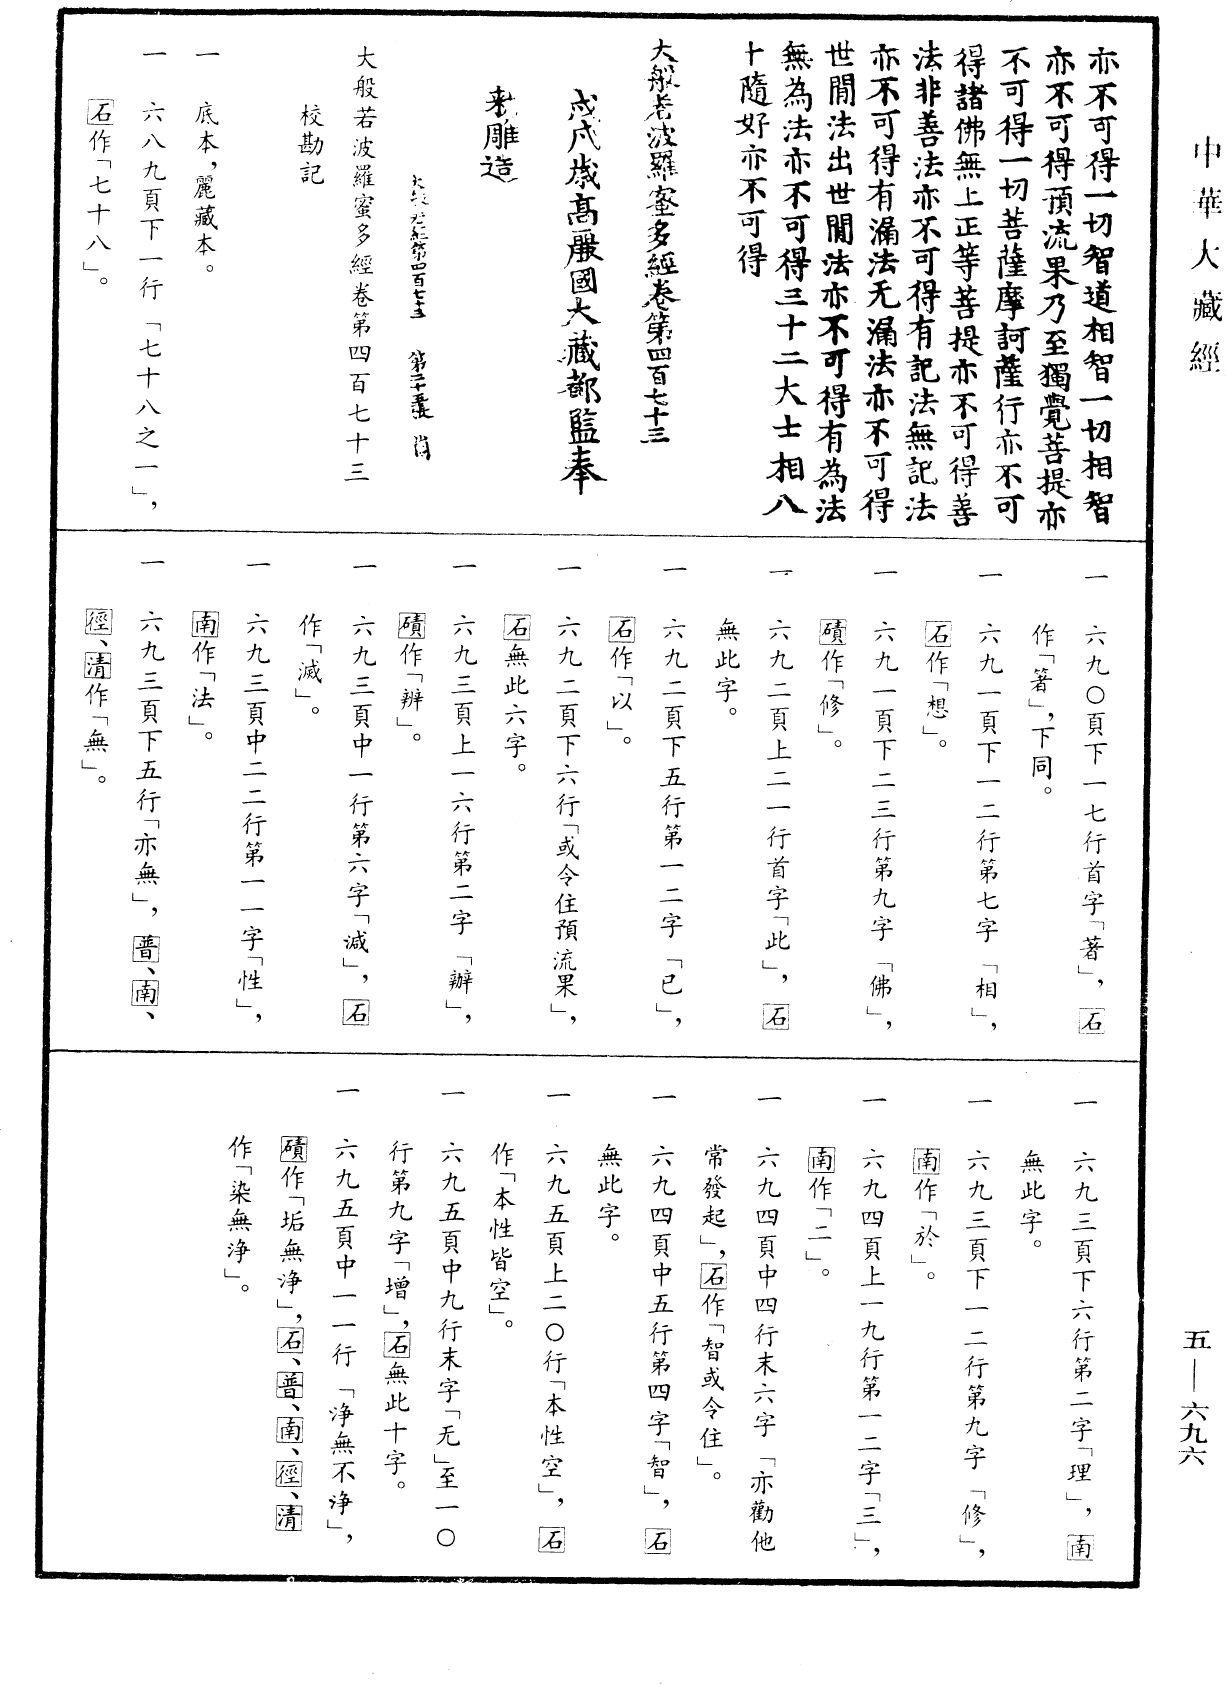 中華大藏經
亦不可得一切智道相智一切相智
亦不可得預流果乃至獨覺菩提亦
不可得一切菩薩摩訶薩行亦不可
得諸佛無上正等菩提亦不可得善
法非善法亦不可得有記法無記法
亦不可得有漏法无漏法亦不可得
世間法出世間法亦不可得有為法
無為法亦不可得三十二大士相八
十隨好亦不可得
大般若波羅蜜多經卷第四百七十三
戊戌歲高麗國大藏都監奉
勑雕造
大般若經第四百七十三 第二十五張 崗
大般若波羅蜜多經卷第四百七十三
校勘記
一 底本，麗藏本。
一 六八九頁下一行「七十八之一」，
石作「七十八」。
一 六九〇頁下一七行首字「著」，石
作「箸」，下同。
一 六九一頁下一二行第七字「相」，
石作「想」。
一 六九一頁下二三行第九字「佛」，
磧作「修」。
一 六九二頁上二一行首字「此」，石
無此字。
一 六九二頁下五行第一二字「已」，
石作「以」。
一 六九二頁下六行「或令住預流果」，
石無此六字。
一 六九三頁上一六行第二字「辦」，
磧作「辨」。
一 六九三頁中一行第六字「減」，石
作「滅」。
一 六九三頁中二二行第一一字「性」，
南作「法」。
一 六九三頁下五行「亦無」，普、南、
徑、清作「無」。
一 六九三頁下六行第二字「理」，南
無此字。
一 六九三頁下一二行第九字「修」，
南作「於」。
一 六九四頁上一九行第一二字「三」，
南作「二」。
一 六九四頁中四行末六字「亦勸他
常發起」，石作「智或令住」。
一 六九四頁中五行第四字「智」，石
無此字。
一 六九五頁上二〇行「本性空」，石
作「本性皆空」。
一 六九五頁中九行末字「无」至一〇
行第九字「增」，石無此十字。
一 六九五頁中一一行「淨無不淨」，
磧作「垢無淨」，石、普、南、徑、清
作「染無淨」。
五—六九六